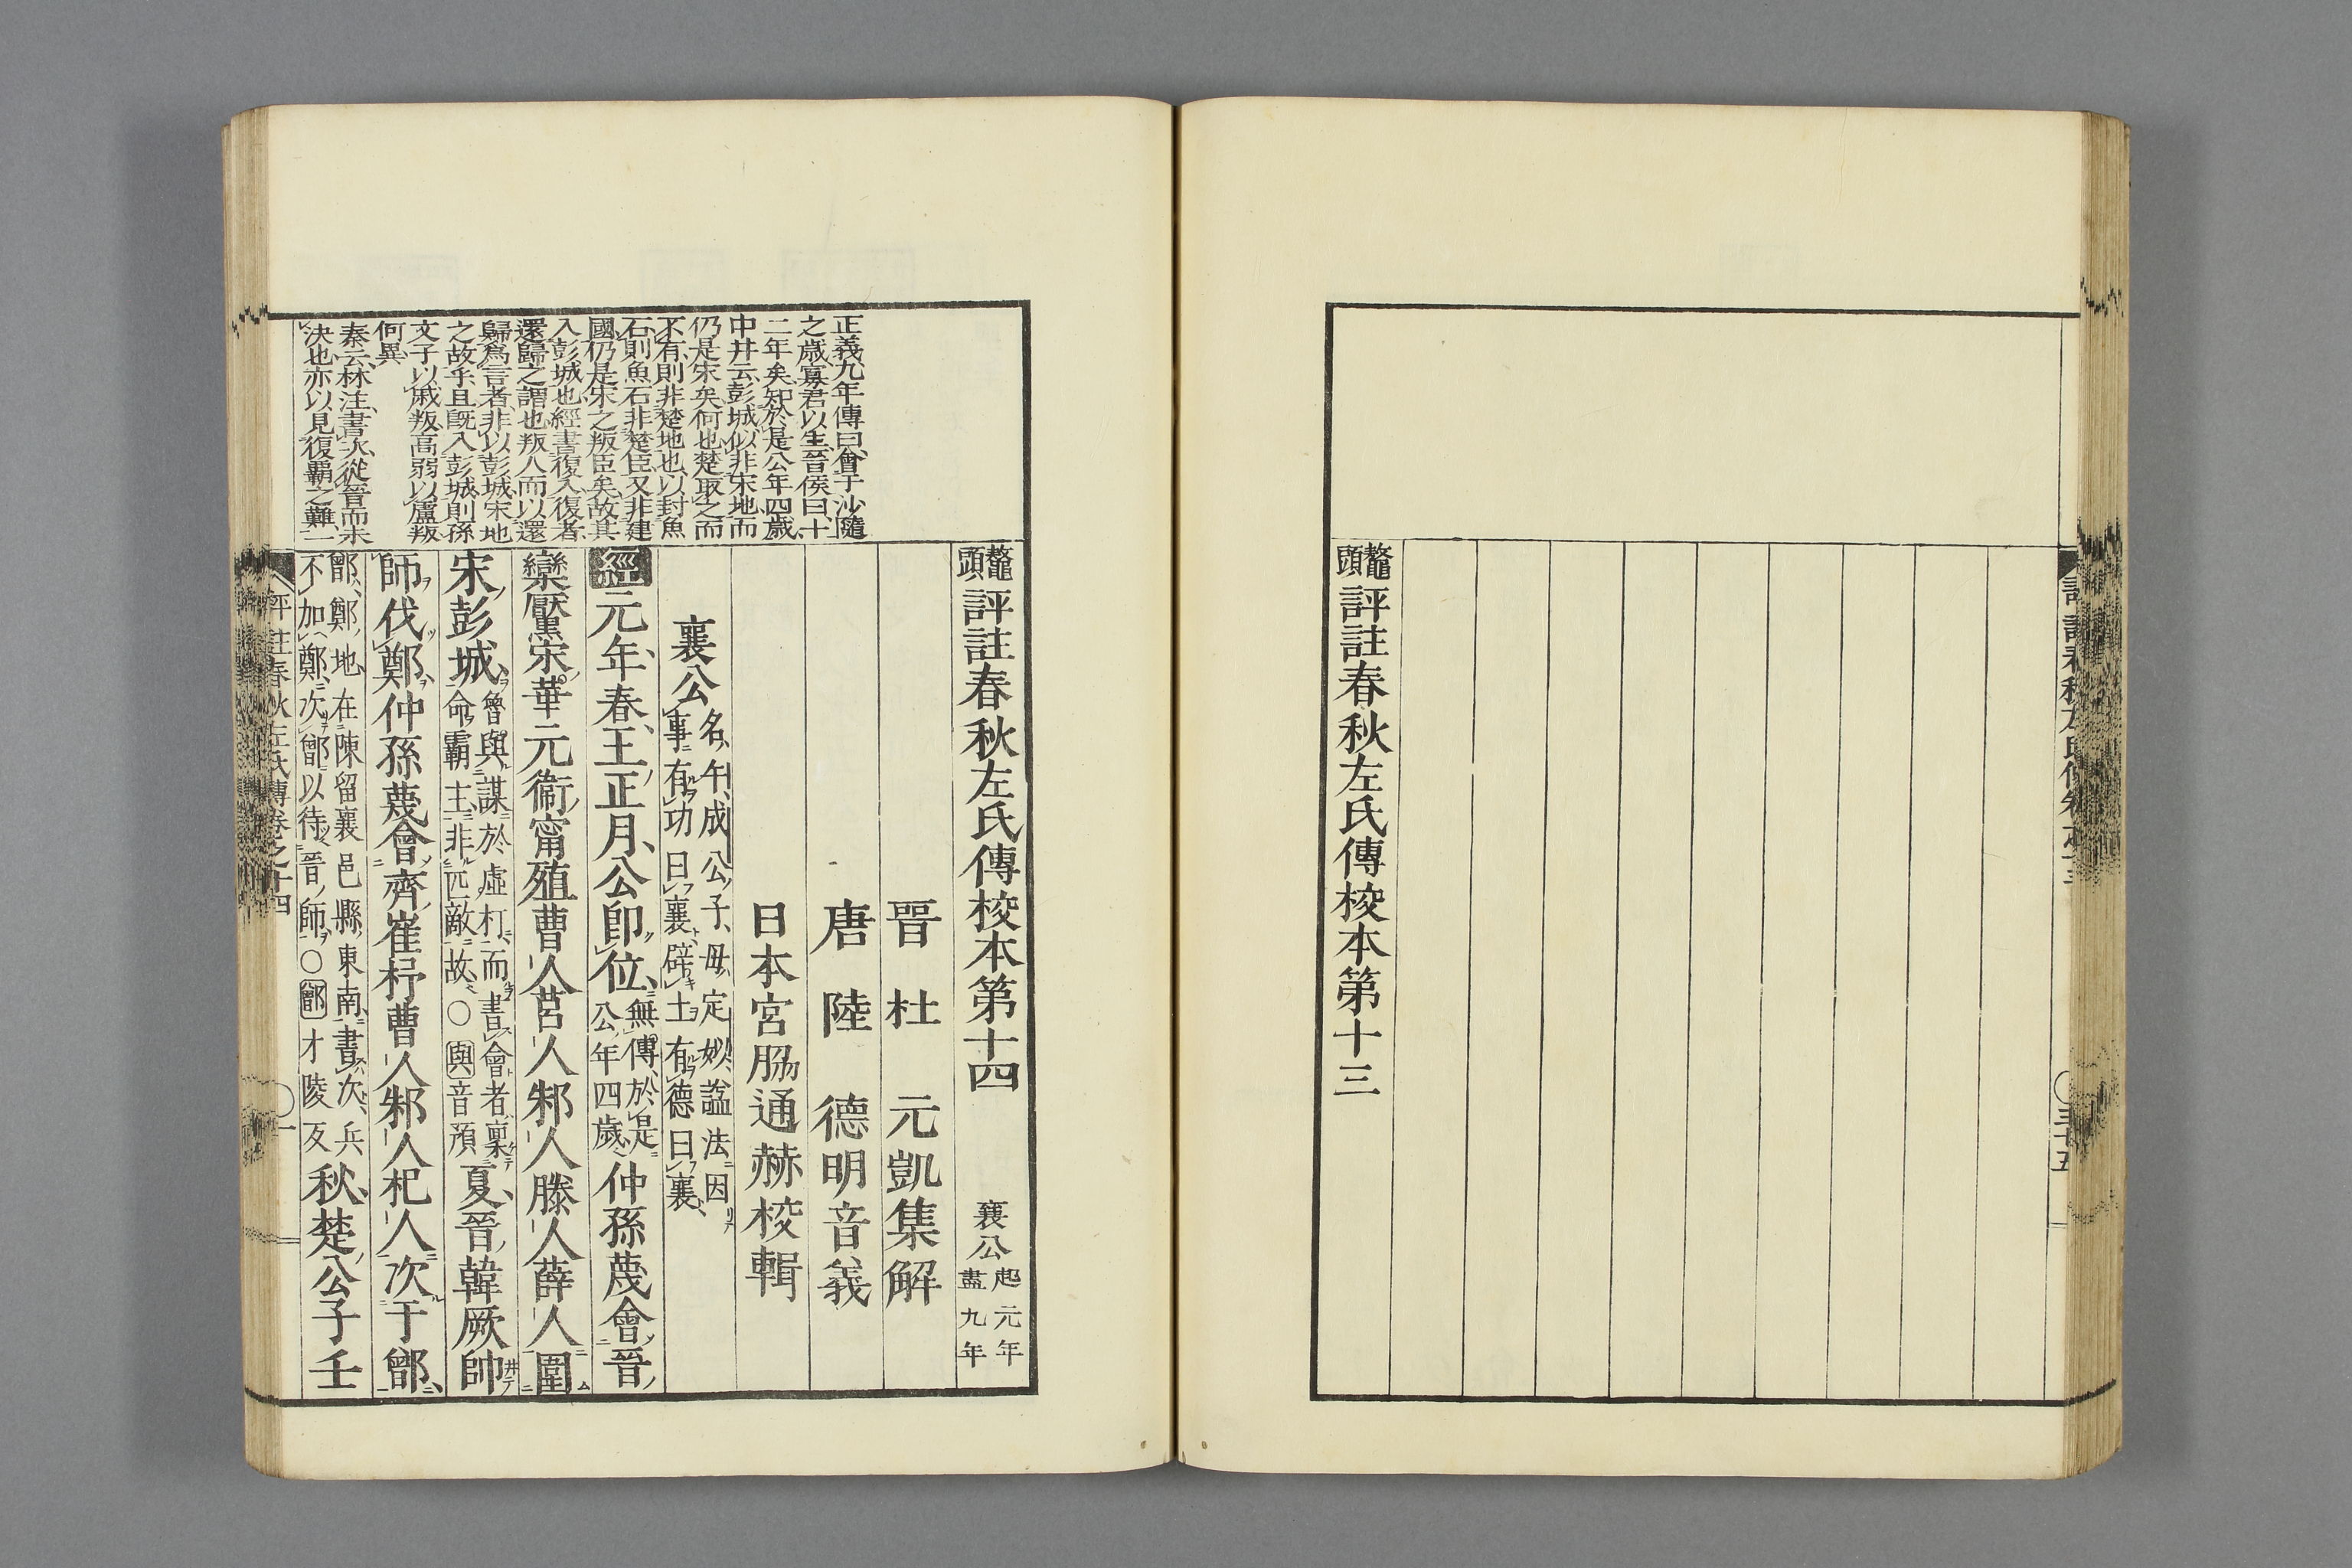 鼇頭評註春秋左氏傳校本第十三
三十五
鼇頭評註春秋左氏傳校本第十四　襄公起元年盡九年
晉　杜　元凱集解
唐　陸　德明音義
日本宮脇通赫校輯
襄公名午成公子母定姒諡法因事有功曰襄辟土有德曰襄
經元年春王正月公卽位無傳於是公年四歲仲孫蔑會晉
欒黶宋華元衞甯殖曹人莒人邾人滕人薛人圍
宋彭城魯與謀於虛朾而書會者稟命霸主非匹敵故〇與音預夏晉韓厥帥
師伐鄭仲孫蔑會齊崔杼曹人邾人杞人次于鄫
鄫鄭地在陳留襄邑縣東南書次兵不加鄭次鄫以待晉師〇鄫才陵反秋楚公子壬
正義九年傳曰會于沙隨
之歲寡君以生晉侯曰十
二年矣知於是公年四歲
中井云彭城似非宋地而
仍是宋矣何也楚取之而
不有則非楚地也以封魚
石則魚石非楚臣又非建
國仍是宋之叛臣矣故其
入彭城也經書復入復者
還歸之謂也叛人而以還
歸爲言者非以彭城宋地
之故乎且旣入彭城則孫
文子以戚叛高弱以盧叛
何異
秦云林注書次從晉而未
決也亦以見復霸之難一
評註春秋左氏傳卷之十四
〇一